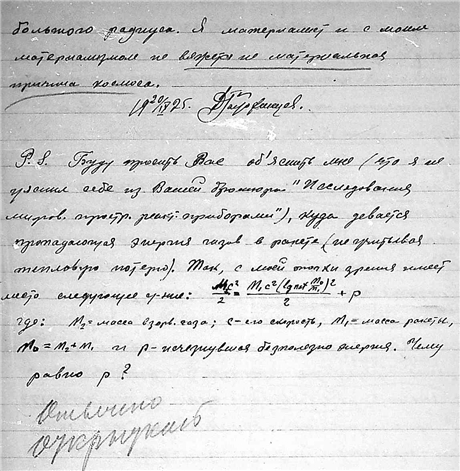 большого радиуса. Я материалист и с моим
материализмом не вяжется не материальная
причина космоса.
19 20/IV 25.
P.S. Буду просить Вас об'яснить мне (что я не
уяснил себе из Вашей брошюры "Исследования
миров. простр. реакт. приборами"), куда девается
пропадающая энергия газов в ракете (не считывая
тепловую потерю). Так, с моей точки зрения имеет
место следующее ур-ние: M₂c²/2 = M₁c²(lg nat M₀/M₁)²/2 + p
где: M₂ = масса взорв. газа; c - его скорость, M₁ = масса ракеты,
M₀ = M₂ + M₁ и p - исчезнувшая бесполезно энергия. Чему
равно p?
Отвечено